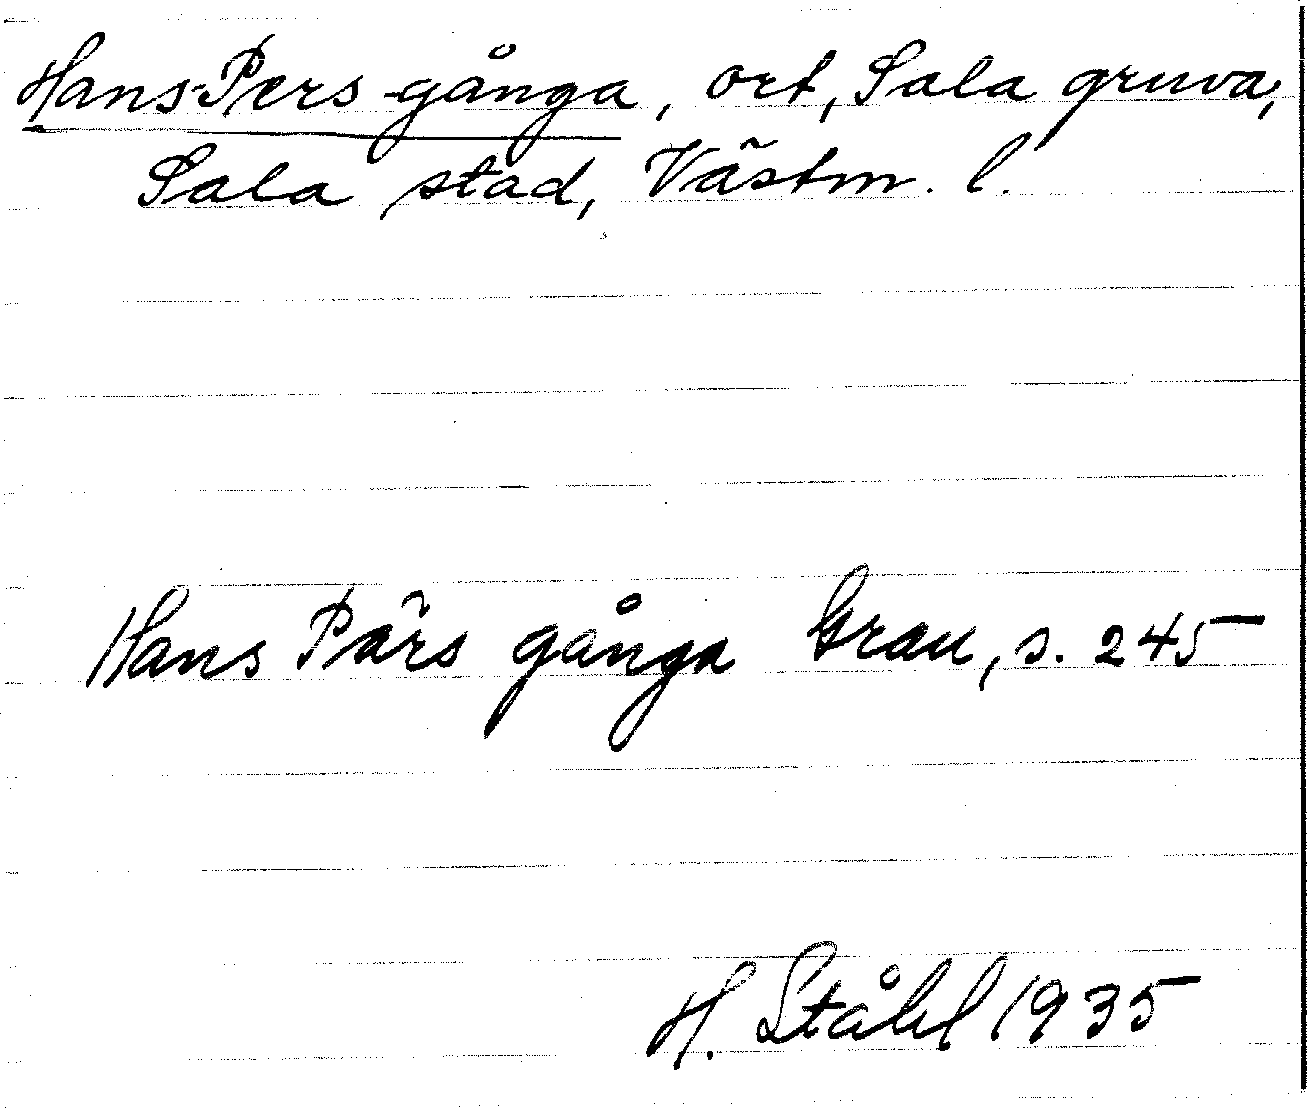 Hans-Pers-gånga, ort, Sala gruva,
Sala stad, Västm. l.
Hans Pärs gånga Grau, s. 245
H. Ståhl 1935